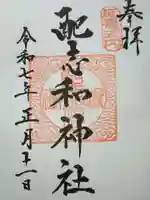 奉拝
配志和神社
令和七年正月十一日